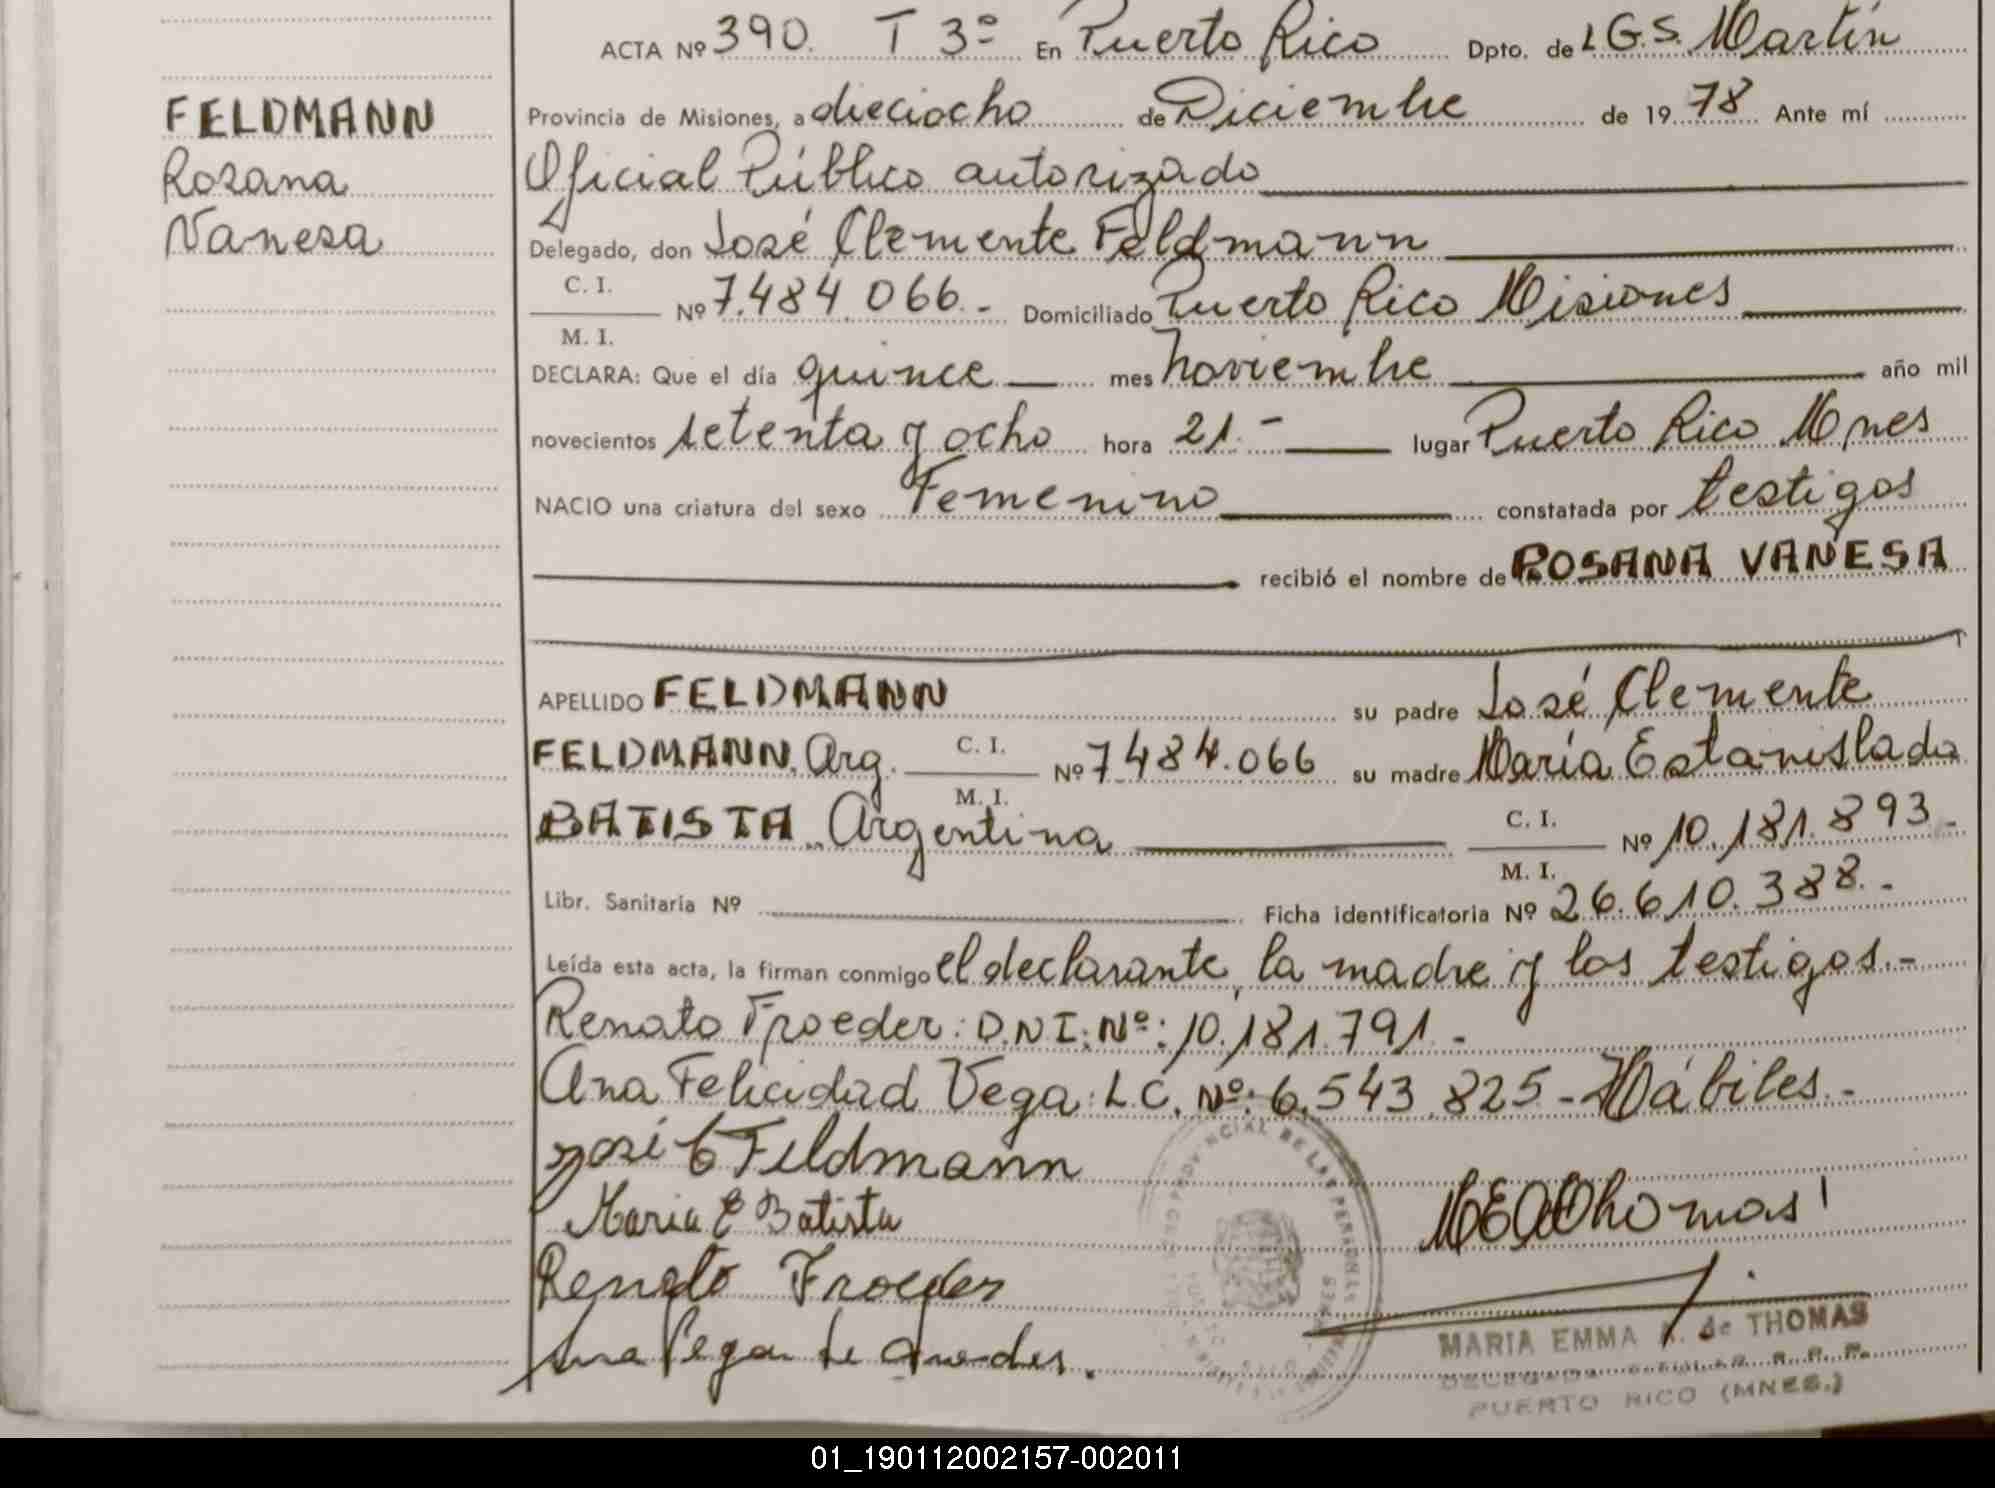 ACTA Nº 390. T 3º En Puerto Rico Dpto. de L.G.S. Martín
FELDMANN
Provincia de Misiones, a dieciocho de Diciembre de 1978 Ante mí
Rosana
Oficial Público autorizado
Vanesa
Delegado, don José Clemente Feldmann
C. I.
Nº 7.484.066.- Domiciliado Puerto Rico Misiones
M. I.
DECLARA: Que el día quince mes noviembre año mil
novecientos setenta y ocho hora 21.- lugar Puerto Rico Mnes
NACIO una criatura del sexo Femenino constatada por testigos
recibió el nombre de ROSANA VANESA
APELLIDO FELDMANN su padre José Clemente
FELDMANN. Arg. C. I. Nº 7.484.066 su madre María Estanislada
M. I.
BATISTA Argentina C. I. Nº 10.181.893.-
M. I.
Libr. Sanitaria Nº Ficha identificatoria Nº 26.610.388.-
Leída esta acta, la firman conmigo el declarante, la madre y los testigos.-
Renato Froeder: D.N.I. Nº: 10.181.791.-
Ana Felicidad Vega: L.C. Nº: 6.543.825 - Hábiles.-
José C Feldmann
Maria E Batista
Renato Froeder
Ana Vega de
Thomas
MARIA EMMA A. de THOMAS
PUERTO RICO (MNES.)
PROVINCIAL DE LAS PERSONAS
01_190112002157-002011